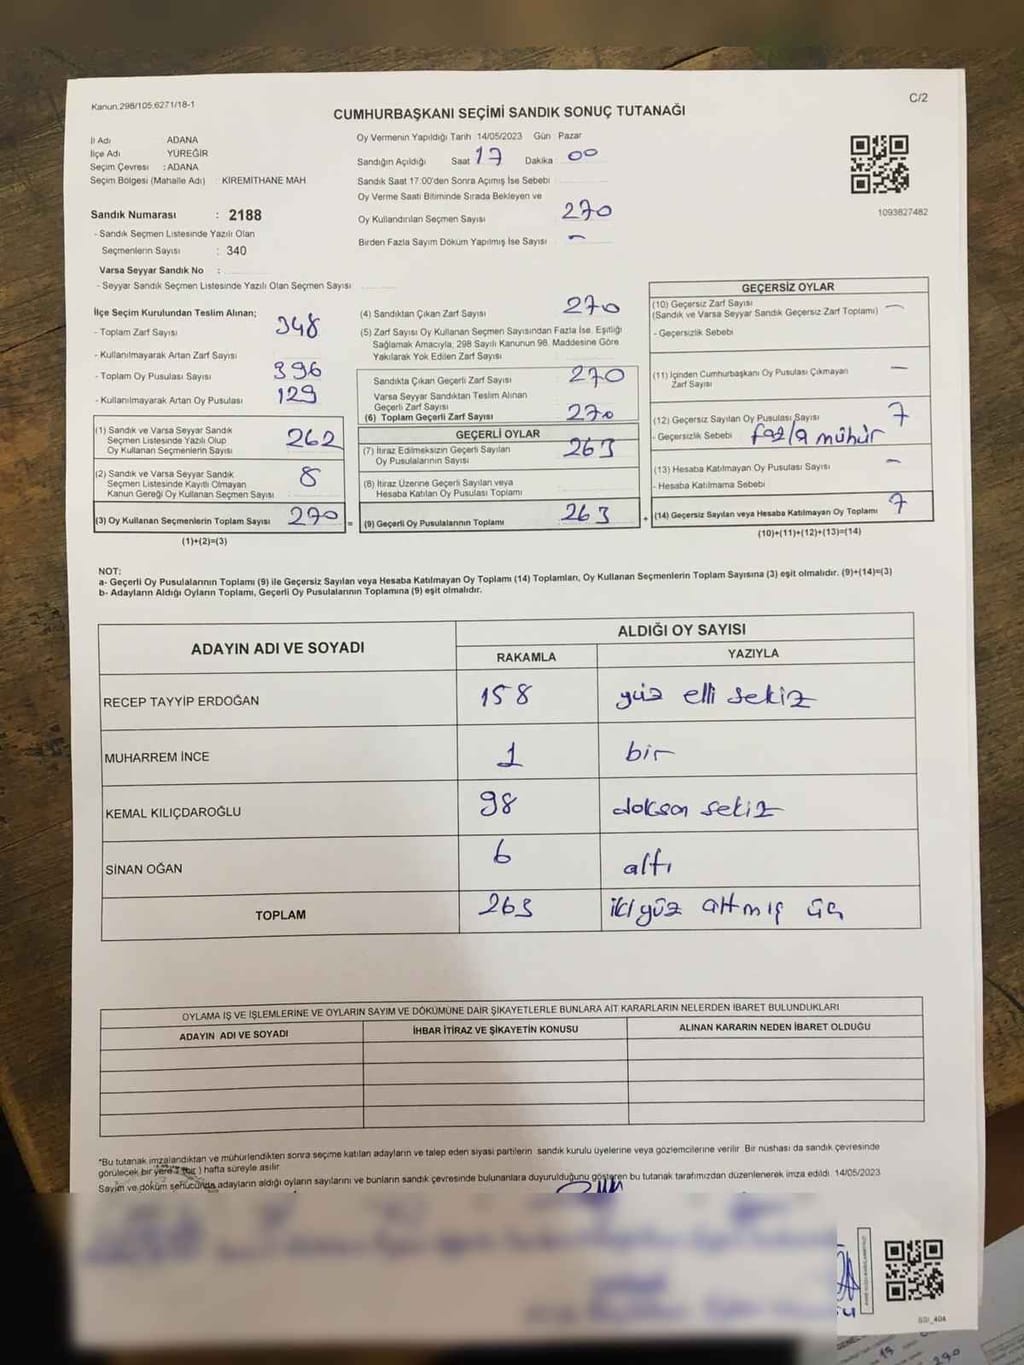 Kanun.298/105,6271/18-1
C/2
CUMHURBAŞKANI SEÇİMİ SANDIK SONUÇ TUTANAĞI
İl Adı ADANA
İlçe Adı YÜREĞİR
Seçim Çevresi : ADANA
Seçim Bölgesi (Mahalle Adı) : KİREMİTHANE MAH
Sandık Numarası : 2188
- Sandık Seçmen Listesinde Yazılı Olan
Seçmenlerin Sayısı : 340
Varsa Seyyar Sandık No :
- Seyyar Sandık Seçmen Listesinde Yazılı Olan Seçmen Sayısı
Oy Vermenin Yapıldığı Tarih 14/05/2023 Gün : Pazar
Sandığın Açıldığı Saat 17 Dakika 00
Sandık Saat 17:00'den Sonra Açımış İse Sebebi
Oy Verme Saati Bitiminde Sırada Bekleyen ve
Oy Kullandırılan Seçmen Sayısı 270
Birden Fazla Sayım Döküm Yapılmış İse Sayısı -
1093827482
İlçe Seçim Kurulundan Teslim Alınan;
- Toplam Zarf Sayısı 348
- Kullanılmayarak Artan Zarf Sayısı
- Toplam Oy Pusulası Sayısı 396
- Kullanılmayarak Artan Oy Pusulası 129
(1) Sandık ve Varsa Seyyar Sandık
Seçmen Listesinde Yazılı Olup
Oy Kullanan Seçmenlerin Sayısı 262
(2) Sandık ve Varsa Seyyar Sandık
Seçmen Listesinde Kayıtlı Olmayan
Kanun Gereği Oy Kullanan Seçmen Sayısı 8
(3) Oy Kullanan Seçmenlerin Toplam Sayısı 270 =
(1)+(2)=(3)
(4) Sandıktan Çıkan Zarf Sayısı 270
(5) Zarf Sayısı Oy Kullanan Seçmen Sayısından Fazla İse, Eşitliği
Sağlamak Amacıyla, 298 Sayılı Kanunun 98. Maddesine Göre
Yakılarak Yok Edilen Zarf Sayısı
Sandıkta Çıkan Geçerli Zarf Sayısı 270
Varsa Seyyar Sandıktan Teslim Alınan
Geçerli Zarf Sayısı
(6) Toplam Geçerli Zarf Sayısı 270
GEÇERLİ OYLAR
(7) İtiraz Edilmeksizin Geçerli Sayılan
Oy Pusulalarının Sayısı 263
(8) İtiraz Üzerine Geçerli Sayılan veya
Hesaba Katılan Oy Pusulası Toplamı
(9) Geçerli Oy Pusulalarının Toplamı 263 +
GEÇERSİZ OYLAR
(10) Geçersiz Zarf Sayısı
(Sandık ve Varsa Seyyar Sandık Geçersiz Zarf Toplamı) -
- Geçersizlik Sebebi
(11) İçinden Cumhurbaşkanı Oy Pusulası Çıkmayan
Zarf Sayısı -
(12) Geçersiz Sayılan Oy Pusulası Sayısı 7
- Geçersizlik Sebebi fazla mühür
(13) Hesaba Katılmayan Oy Pusulası Sayısı -
- Hesaba Katılmama Sebebi
(14) Geçersiz Sayılan veya Hesaba Katılmayan Oy Toplamı 7
(10)+(11)+(12)+(13)=(14)
NOT:
a- Geçerli Oy Pusulalarının Toplamı (9) ile Geçersiz Sayılan veya Hesaba Katılmayan Oy Toplamı (14) Toplamları, Oy Kullanan Seçmenlerin Toplam Sayısına (3) eşit olmalıdır. (9)+(14)=(3)
b- Adayların Aldığı Oyların Toplamı, Geçerli Oy Pusulalarının Toplamına (9) eşit olmalıdır.
ADAYIN ADI VE SOYADI
ALDIĞI OY SAYISI
RAKAMLA YAZIYLA
RECEP TAYYİP ERDOĞAN 158 yüz elli sekiz
MUHARREM İNCE 1 bir
KEMAL KILIÇDAROĞLU 98 doksan sekiz
SİNAN OĞAN 6 altı
TOPLAM 263 iki yüz altmış üç
OYLAMA İŞ VE İŞLEMLERİNE VE OYLARIN SAYIM VE DÖKÜMÜNE DAİR ŞİKAYETLERLE BUNLARA AİT KARARLARIN NELERDEN İBARET BULUNDUKLARI
ADAYIN ADI VE SOYADI İHBAR İTİRAZ VE ŞİKAYETİN KONUSU ALINAN KARARIN NEDEN İBARET OLDUĞU
*Bu tutanak imzalandıktan ve mühürlendikten sonra seçime katılan adayların ve talep eden siyasi partilerin sandık kurulu üyelerine veya gözlemcilerine verilir. Bir nüshası da sandık çevresinde
görülecek bir yere 1 (bir) hafta süreyle asılır
Sayım ve döküm sonucunda adayların aldığı oyların sayılarını ve bunların sandık çevresinde bulunanlara duyurulduğunu gösteren bu tutanak tarafımızdan düzenlenerek imza edildi. 14/05/2023